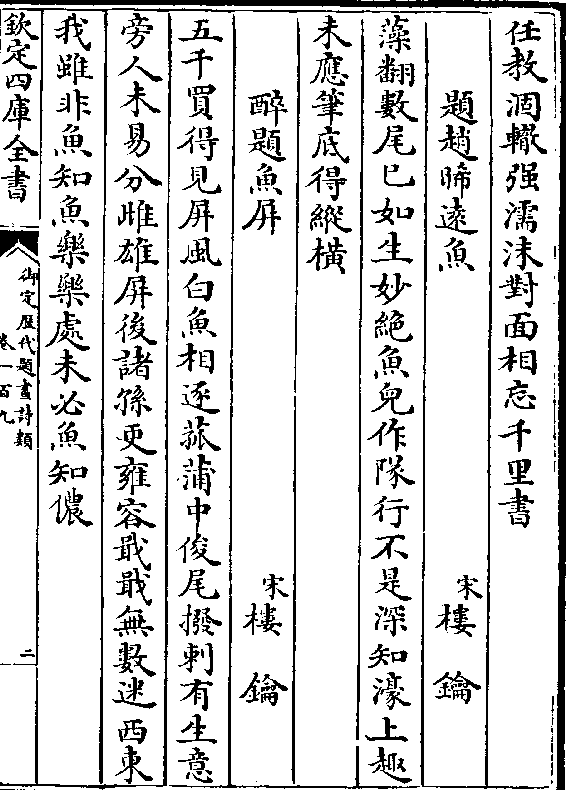 任教涸轍强濡沫對面相忘千里書
題趙晞逺魚
宋樓鑰
藻翻數尾已如生妙絶魚兒作隊行不是深知濠上趣
未應筆底得縱横
醉題魚屏
宋樓鑰
五千買得見屏風白魚相逐菰蒲中俊尾撥剌有生意
旁人未易分雌雄屏後諸孫更雍容戢戢無數迷西東
我雖非魚知魚樂樂處未必魚知儂
欽定四庫全書
御定歴代題畫詩類
卷一百九
二